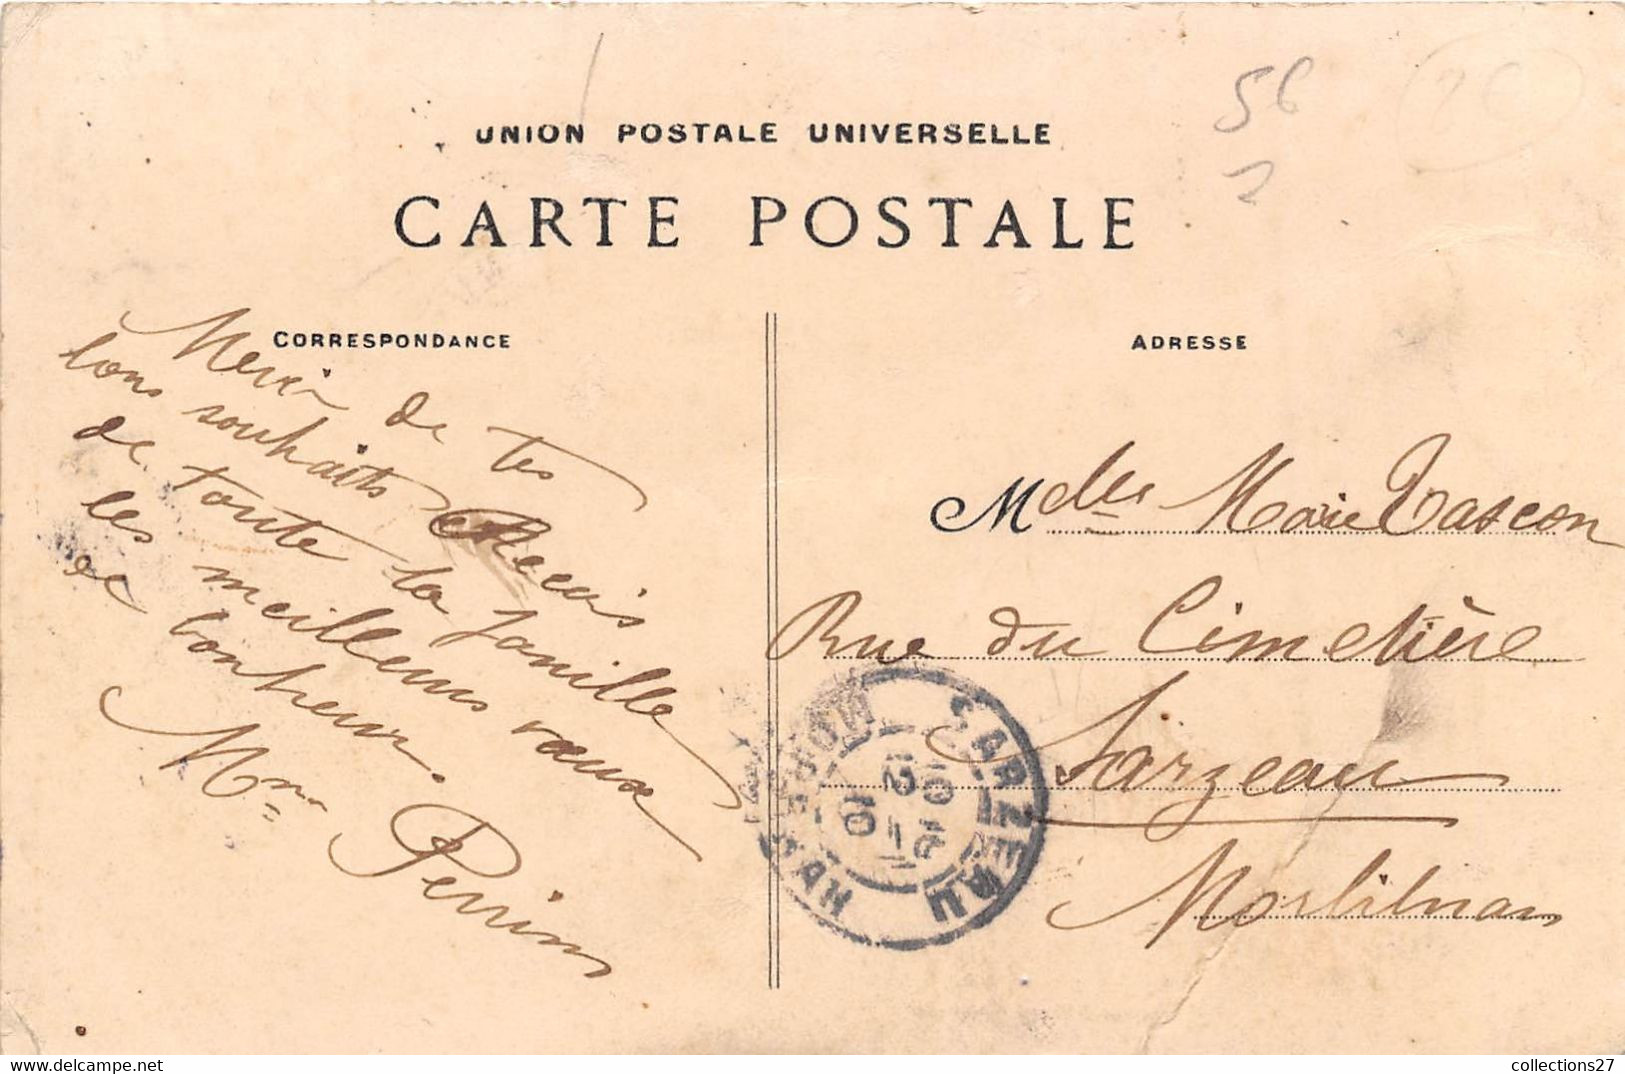 56
26
2
UNION POSTALE UNIVERSELLE
CARTE POSTALE
CORRESPONDANCE
Merci de tes
bons souhaits Reçois
de toute la famille
les meilleurs vœux
de bonheur.
Mme Perrin
ADRESSE
Mdlle Marie Tascon
Rue du Cimetière
Sarzeau
Morbihan
SARZEAU
MORBIHAN
10
collections27